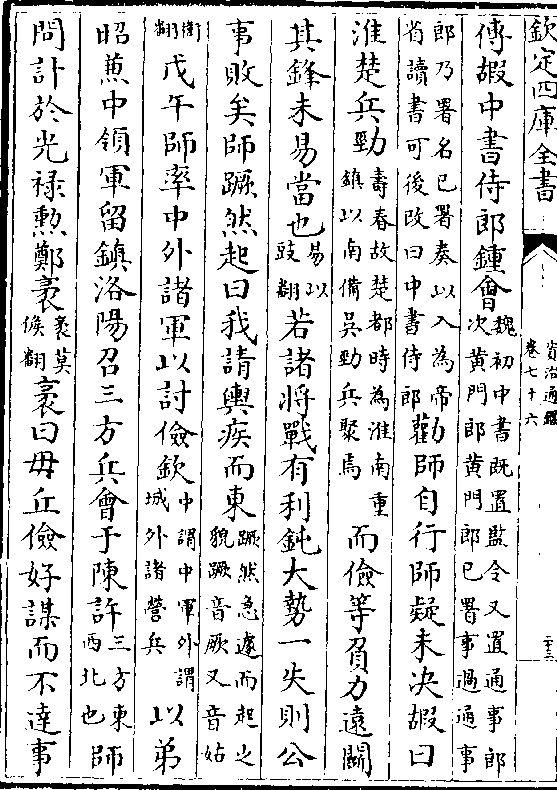 欽定四庫全書
資治通鑑
卷七十六
二十三
傅嘏中書侍郎鍾會魏初中書既置監令又置通事郎
次黄門郎黄門郎已署事過通事
郎乃署名已署奏以入為帝
省讀書可後改曰中書侍郎勸師自行師疑未决嘏曰
淮楚兵勁壽春故楚都時為淮南重
鎮以南備吳勁兵聚焉而儉等負力逺鬭
其鋒未易當也易以
豉翻若諸將戰有利鈍大勢一失則公
事敗矣師蹶然起曰我請輿疾而東蹶然急遽而起之
貌蹶音厥又音姑
衛翻戊午師率中外諸軍以討儉欽中謂中軍外謂
城外諸營兵以弟
昭兼中領軍留鎮洛陽召三方兵會于陳許三方東
西北也師
問計於光禄勲鄭袤袤莫
候翻袤曰毋丘儉好謀而不達事